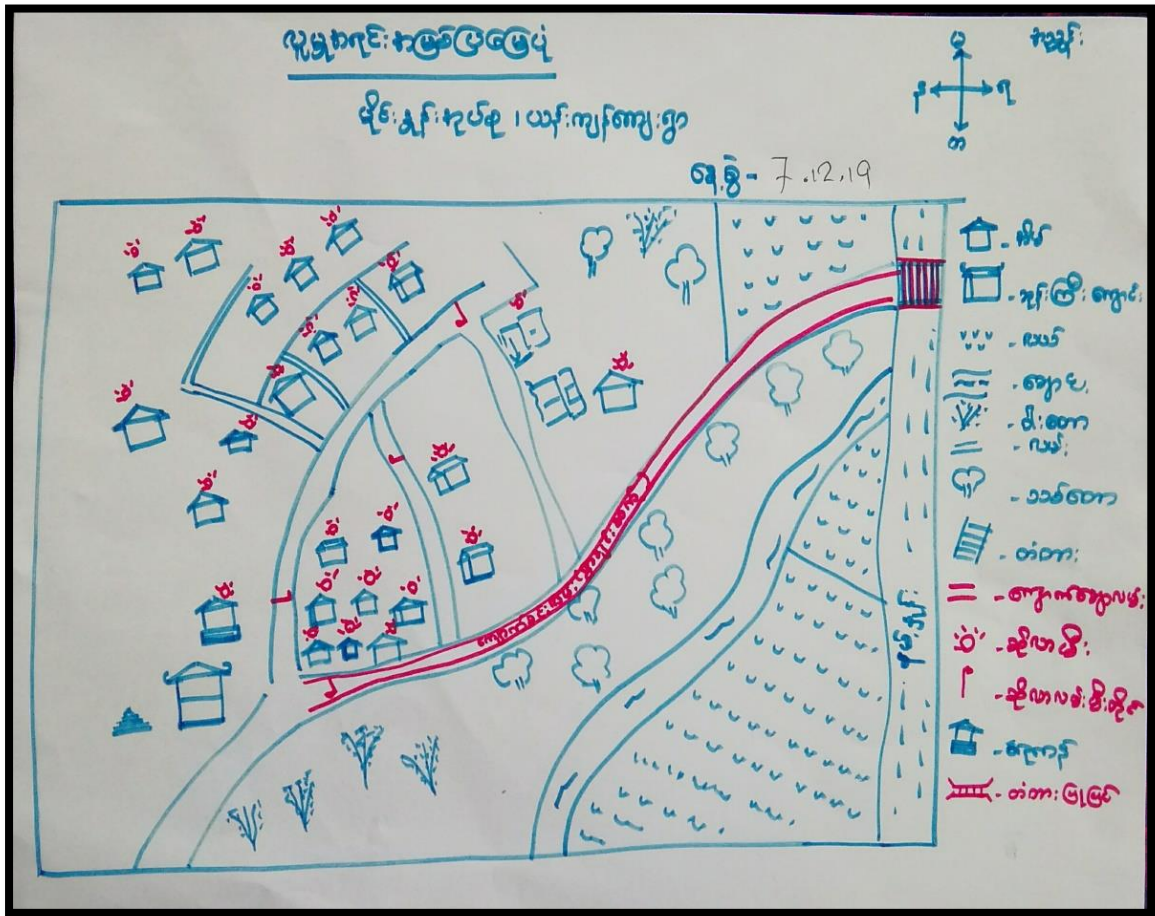 လူမှုအရင်းအမြစ်ပြမြေပုံ
မိုင်းနွန်းအုပ်စု ၊ ယန်းကျန်ကျေးရွာ
နေ့စွဲ - 7.12.19
အညွှန်း
မ
န
ရ
တ
- အိမ်
- ဘုန်းကြီးကျောင်း
- လယ်
- ချောင်း
- ဝါးတော
- လမ်း
- သစ်တော
- တံတား
- ကျောက်ချောလမ်း
- ဆိုလာမီး
- ဆိုလာလမ်းမီးတိုင်
- ရေကန်
- တံတားပြုပြင်